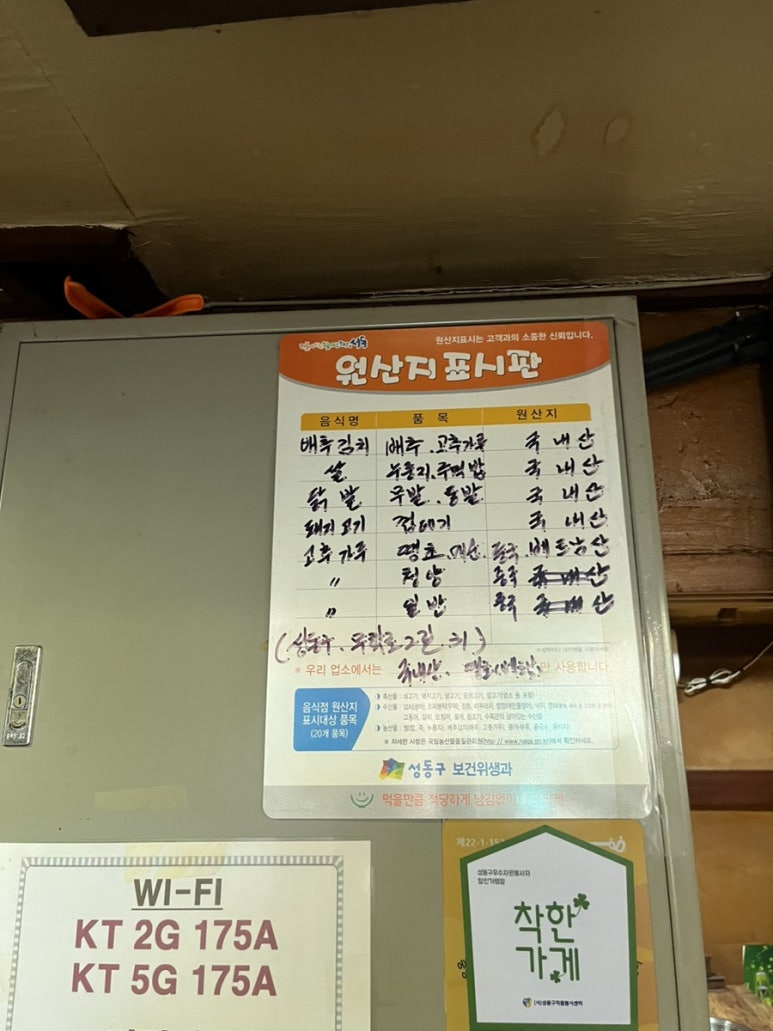 원산지표시는 고객과의 소중한 신뢰입니다.
원산지표시판
음식명 품 목 원산지
배추김치 배추. 고추가루 국내산
쌀 누룽지. 주먹밥 국내산
닭발 무발. 통발 국내산
돼지고기 껍데기 국내산
고추가루 땡초. 중국. 베트남산
〃 청양 중국 국내산
〃 일반 중국 국내산
(성동구. 무학로2길. 31)
※ 우리 업소에서는 국내산. 만 사용합니다.
음식점 원산지
표시대상 품목
(20개 품목)
※ 자세한 사항은 국립농산물품질관리원(http://www.naqs.go.kr)에서 확인하세요.
성동구 보건위생과
먹을만큼 적당하게 남김없이
WI-FI
KT 2G 175A
KT 5G 175A
제22-1-15
성동구우수자원봉사자
할인가맹점
착한
가게
(사)성동구자원봉사센터